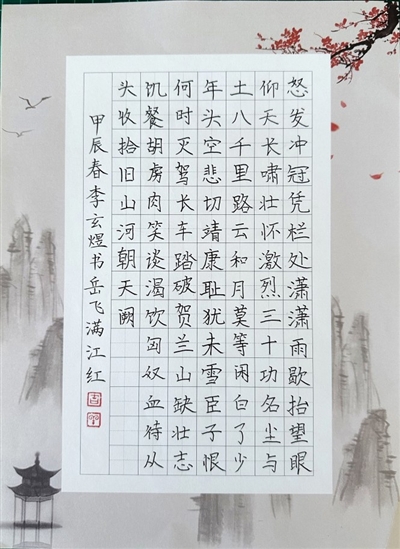 怒发冲冠凭栏处潇潇雨歇抬望眼
仰天长啸壮怀激烈三十功名尘与
土八千里路云和月莫等闲白了少
年头空悲切靖康耻犹未雪臣子恨
何时灭驾长车踏破贺兰山缺壮志
饥餐胡虏肉笑谈渴饮匈奴血待从
头收拾旧山河朝天阙
甲辰春李玄煜书岳飞满江红